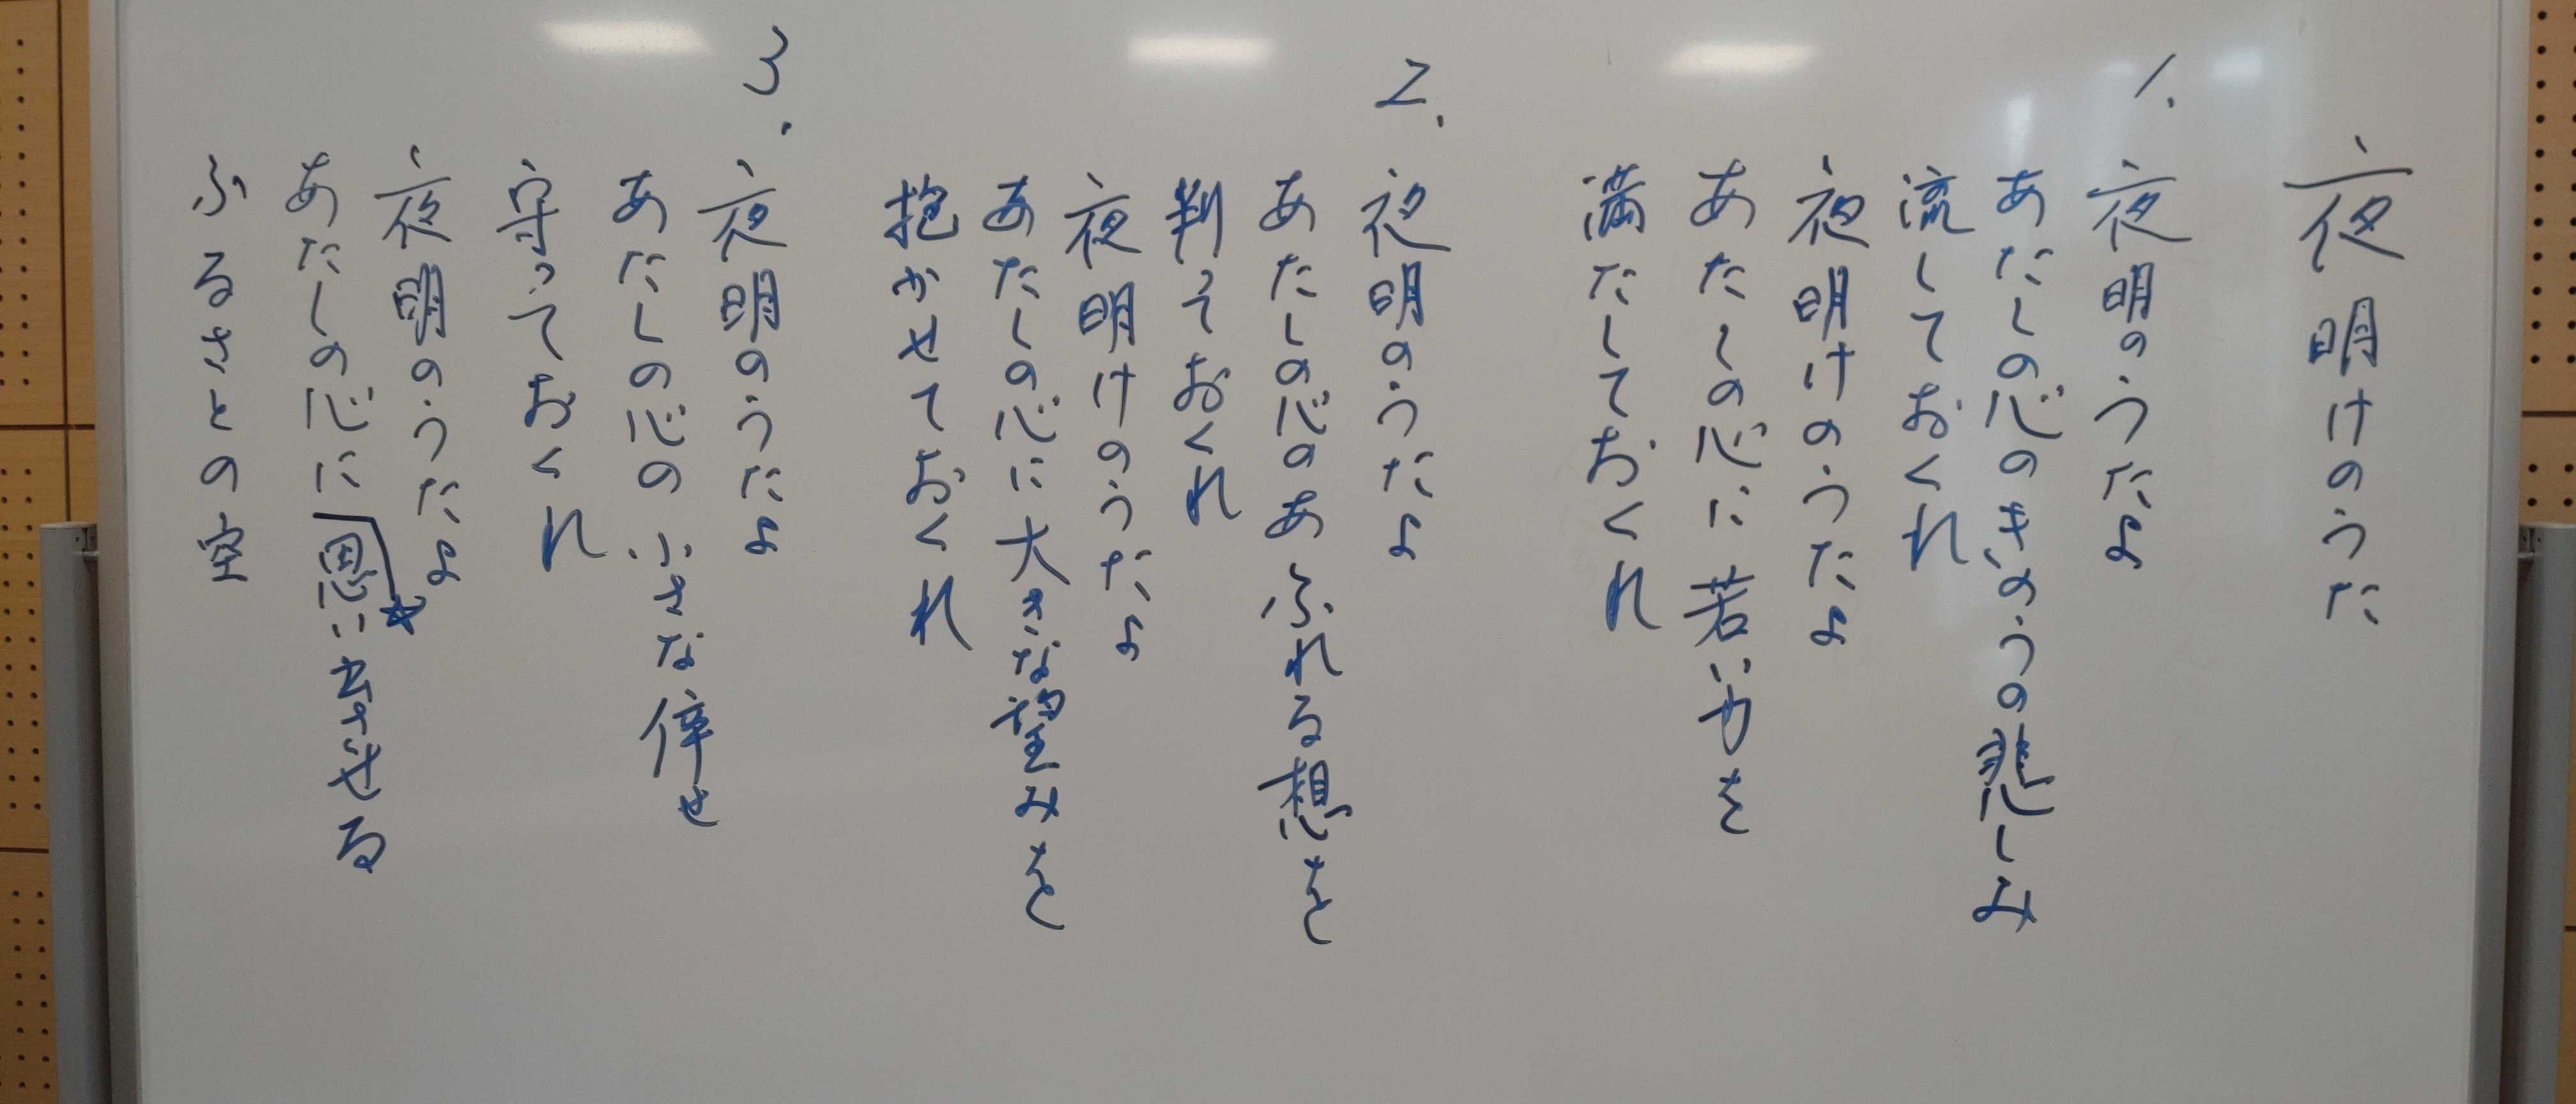 夜明けのうた
1.
夜明のうたよ
あたしの心のきのうの悲しみ
流しておくれ
夜明けのうたよ
あたしの心に若い力を
満たしておくれ
2.
夜明のうたよ
あたしの心のあふれる想を
判っておくれ
夜明けのうたよ
あたしの心に大きな望みを
抱かせておくれ
3.
夜明のうたよ
あたしの心の小さな倖せ
守っておくれ
夜明のうたよ
あたしの心に思い出させる
ふるさとの空